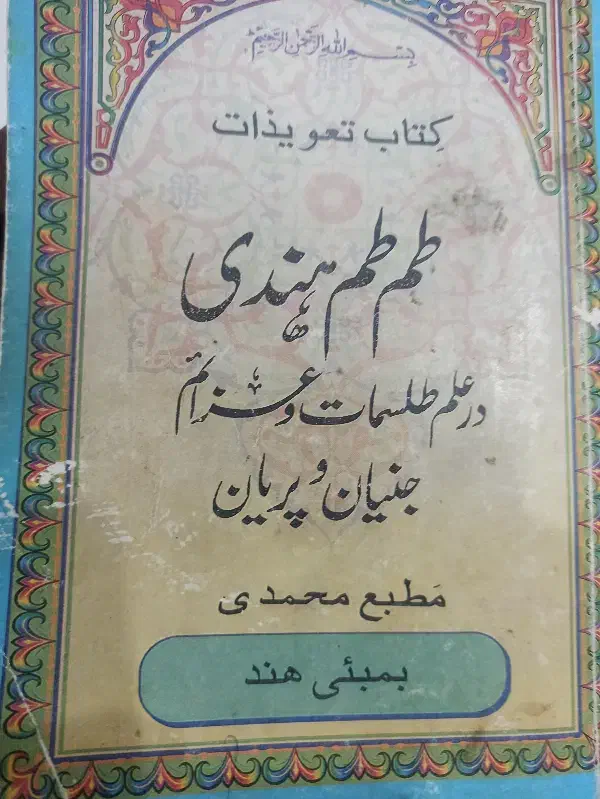 بسم الله الرحمن الرحیم
کتاب تعویذات
طم طم هندی
در علم طلسمات و عزائم
جنیان و پریان
مطبع محمدی
بمبئی هند